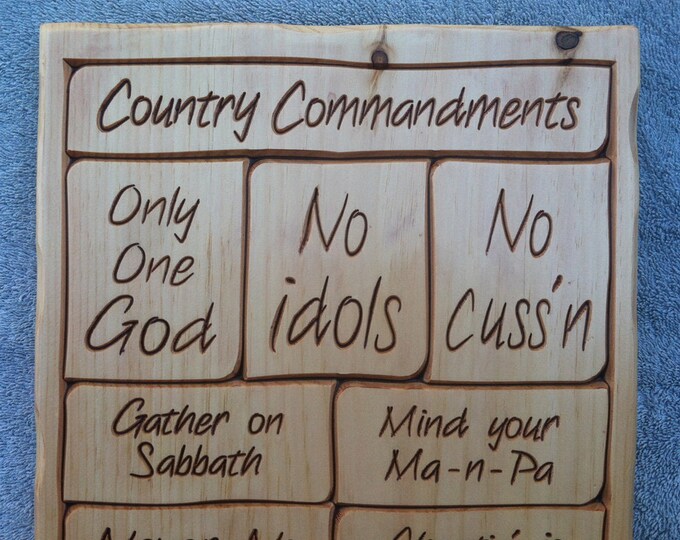 Country Commandments
Only
One
God
No
idols
No
cuss'n
Gather on
Sabbath
Mind your
Ma-n-Pa